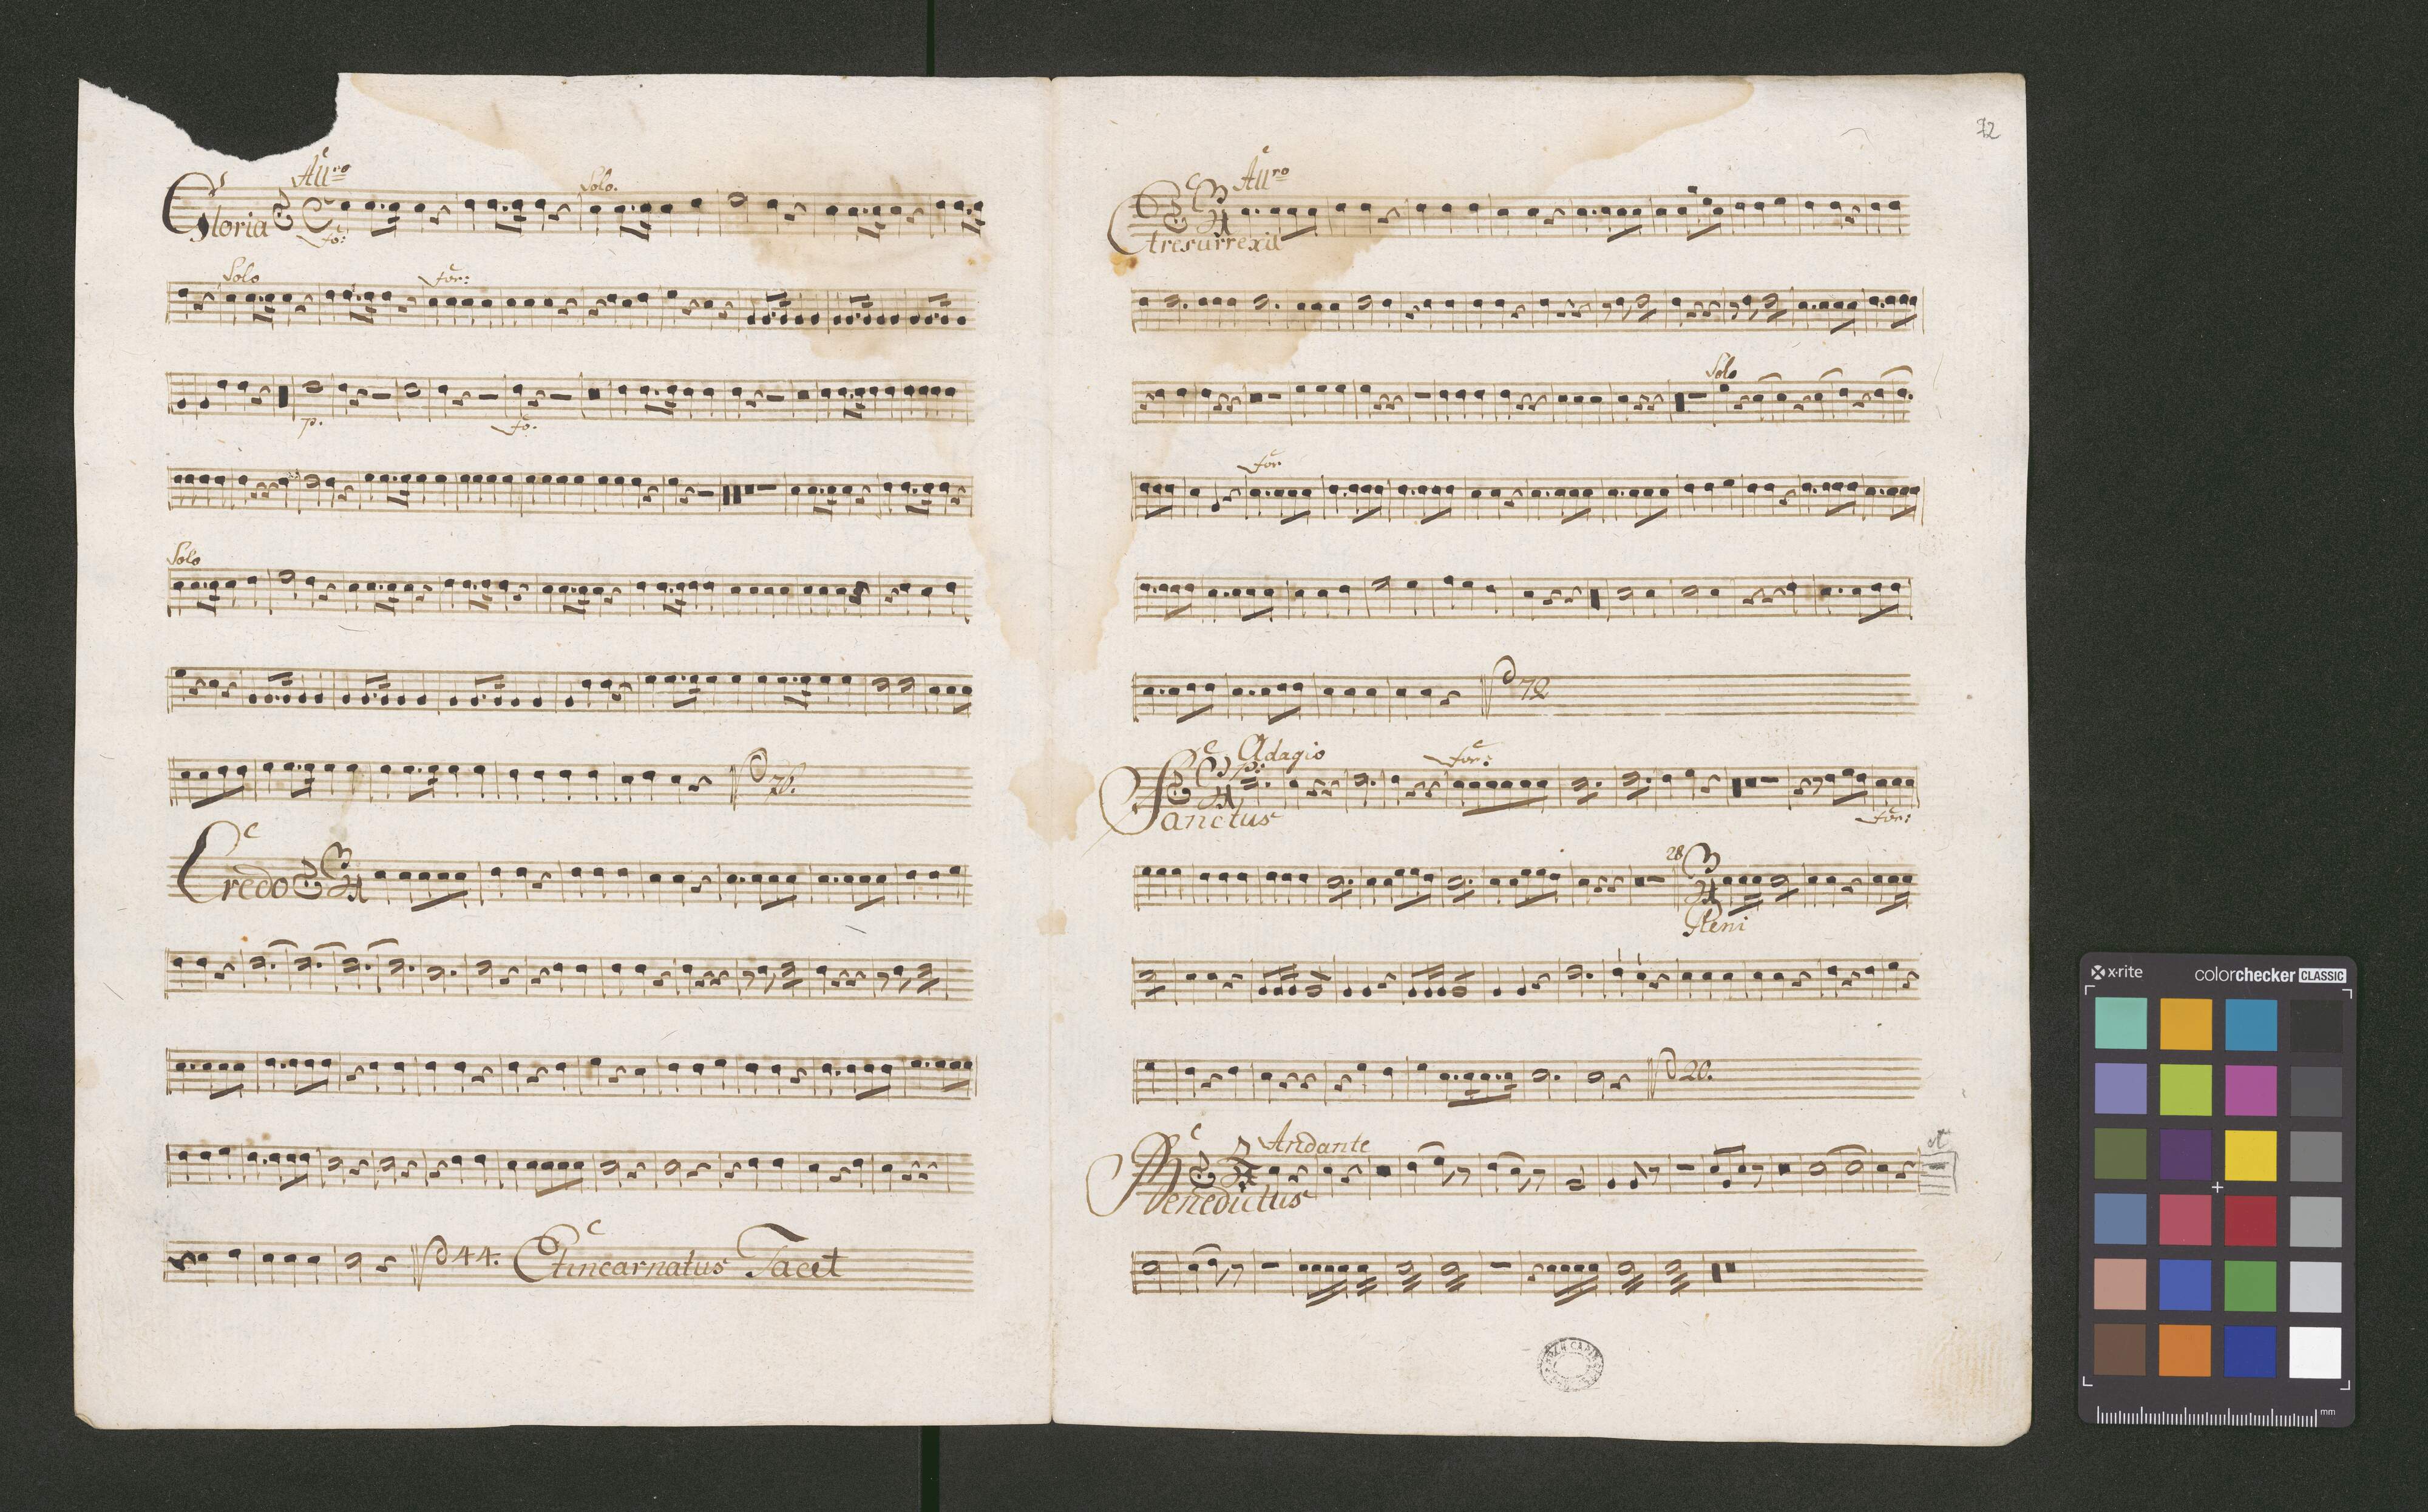 Allro
Solo.
Gloria
fo:
Solo
for:
p.
fo.
Solo
76.
Credo
44. Etincarnatus Tacet
72
Allro
Etresurrexit
Solo
for
72
Adagio
p:
for:
Sanctus
for:
28
Pleni
20.
Andante
Benedictus
x·rite
colorchecker CLASSIC
mm